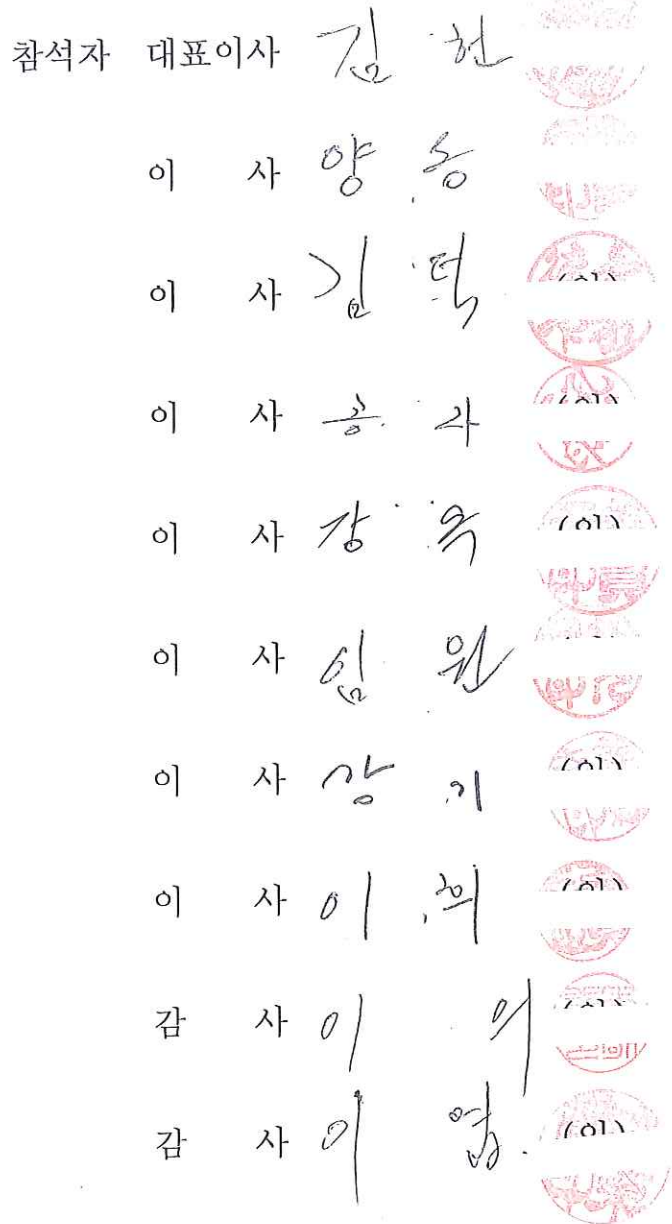 참석자 대표이사 김 헌
이 사 양 승
이 사 김 덕 (인)
이 사 홍 가 (인)
이 사 강 욱 (인)
이 사 임 원
이 사 강 기 (인)
이 사 이 희 (인)
감 사 이 의 (인)
감 사 이 엽 (인)